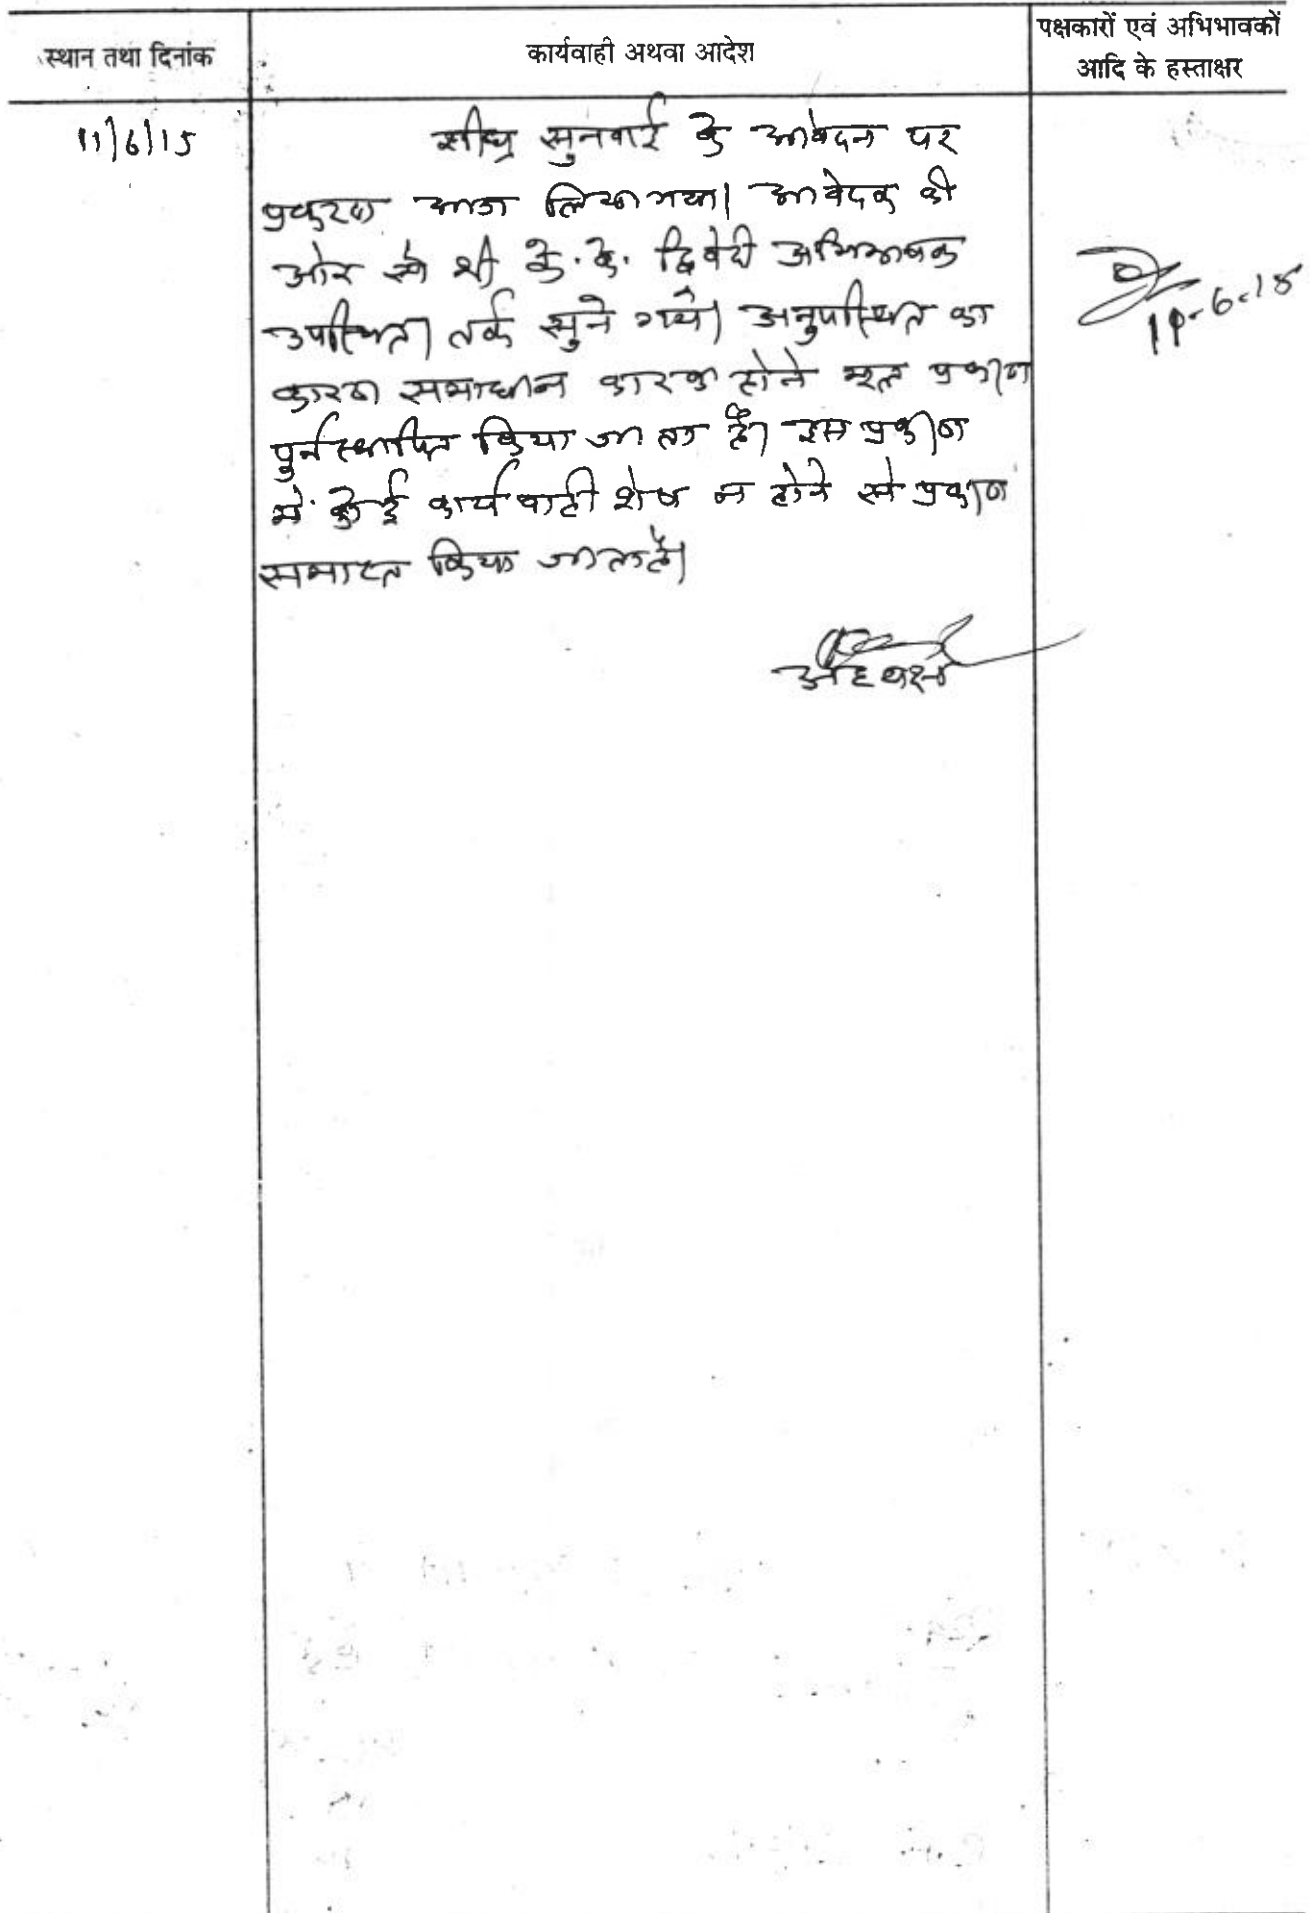 स्थान तथा दिनांक
कार्यवाही अथवा आदेश
पक्षकारों एवं अभिभावकों
आदि के हस्ताक्षर
11/6/15
शीघ्र सुनवाई के आवेदन पर
प्रकरण आज लिया गया। आवेदक की
ओर से श्री के. के. द्विवेदी अभिभाषक
उपस्थित। तर्क सुने गये। अनुपस्थित का
कारण समाधान कारक होने मूल प्रकरण
पुर्नस्थापित किया जाता है। इस प्रकरण
में कोई कार्यवाही शेष न होने से प्रकरण
समाप्त किया जाता है।
अध्यक्ष
11-6-15